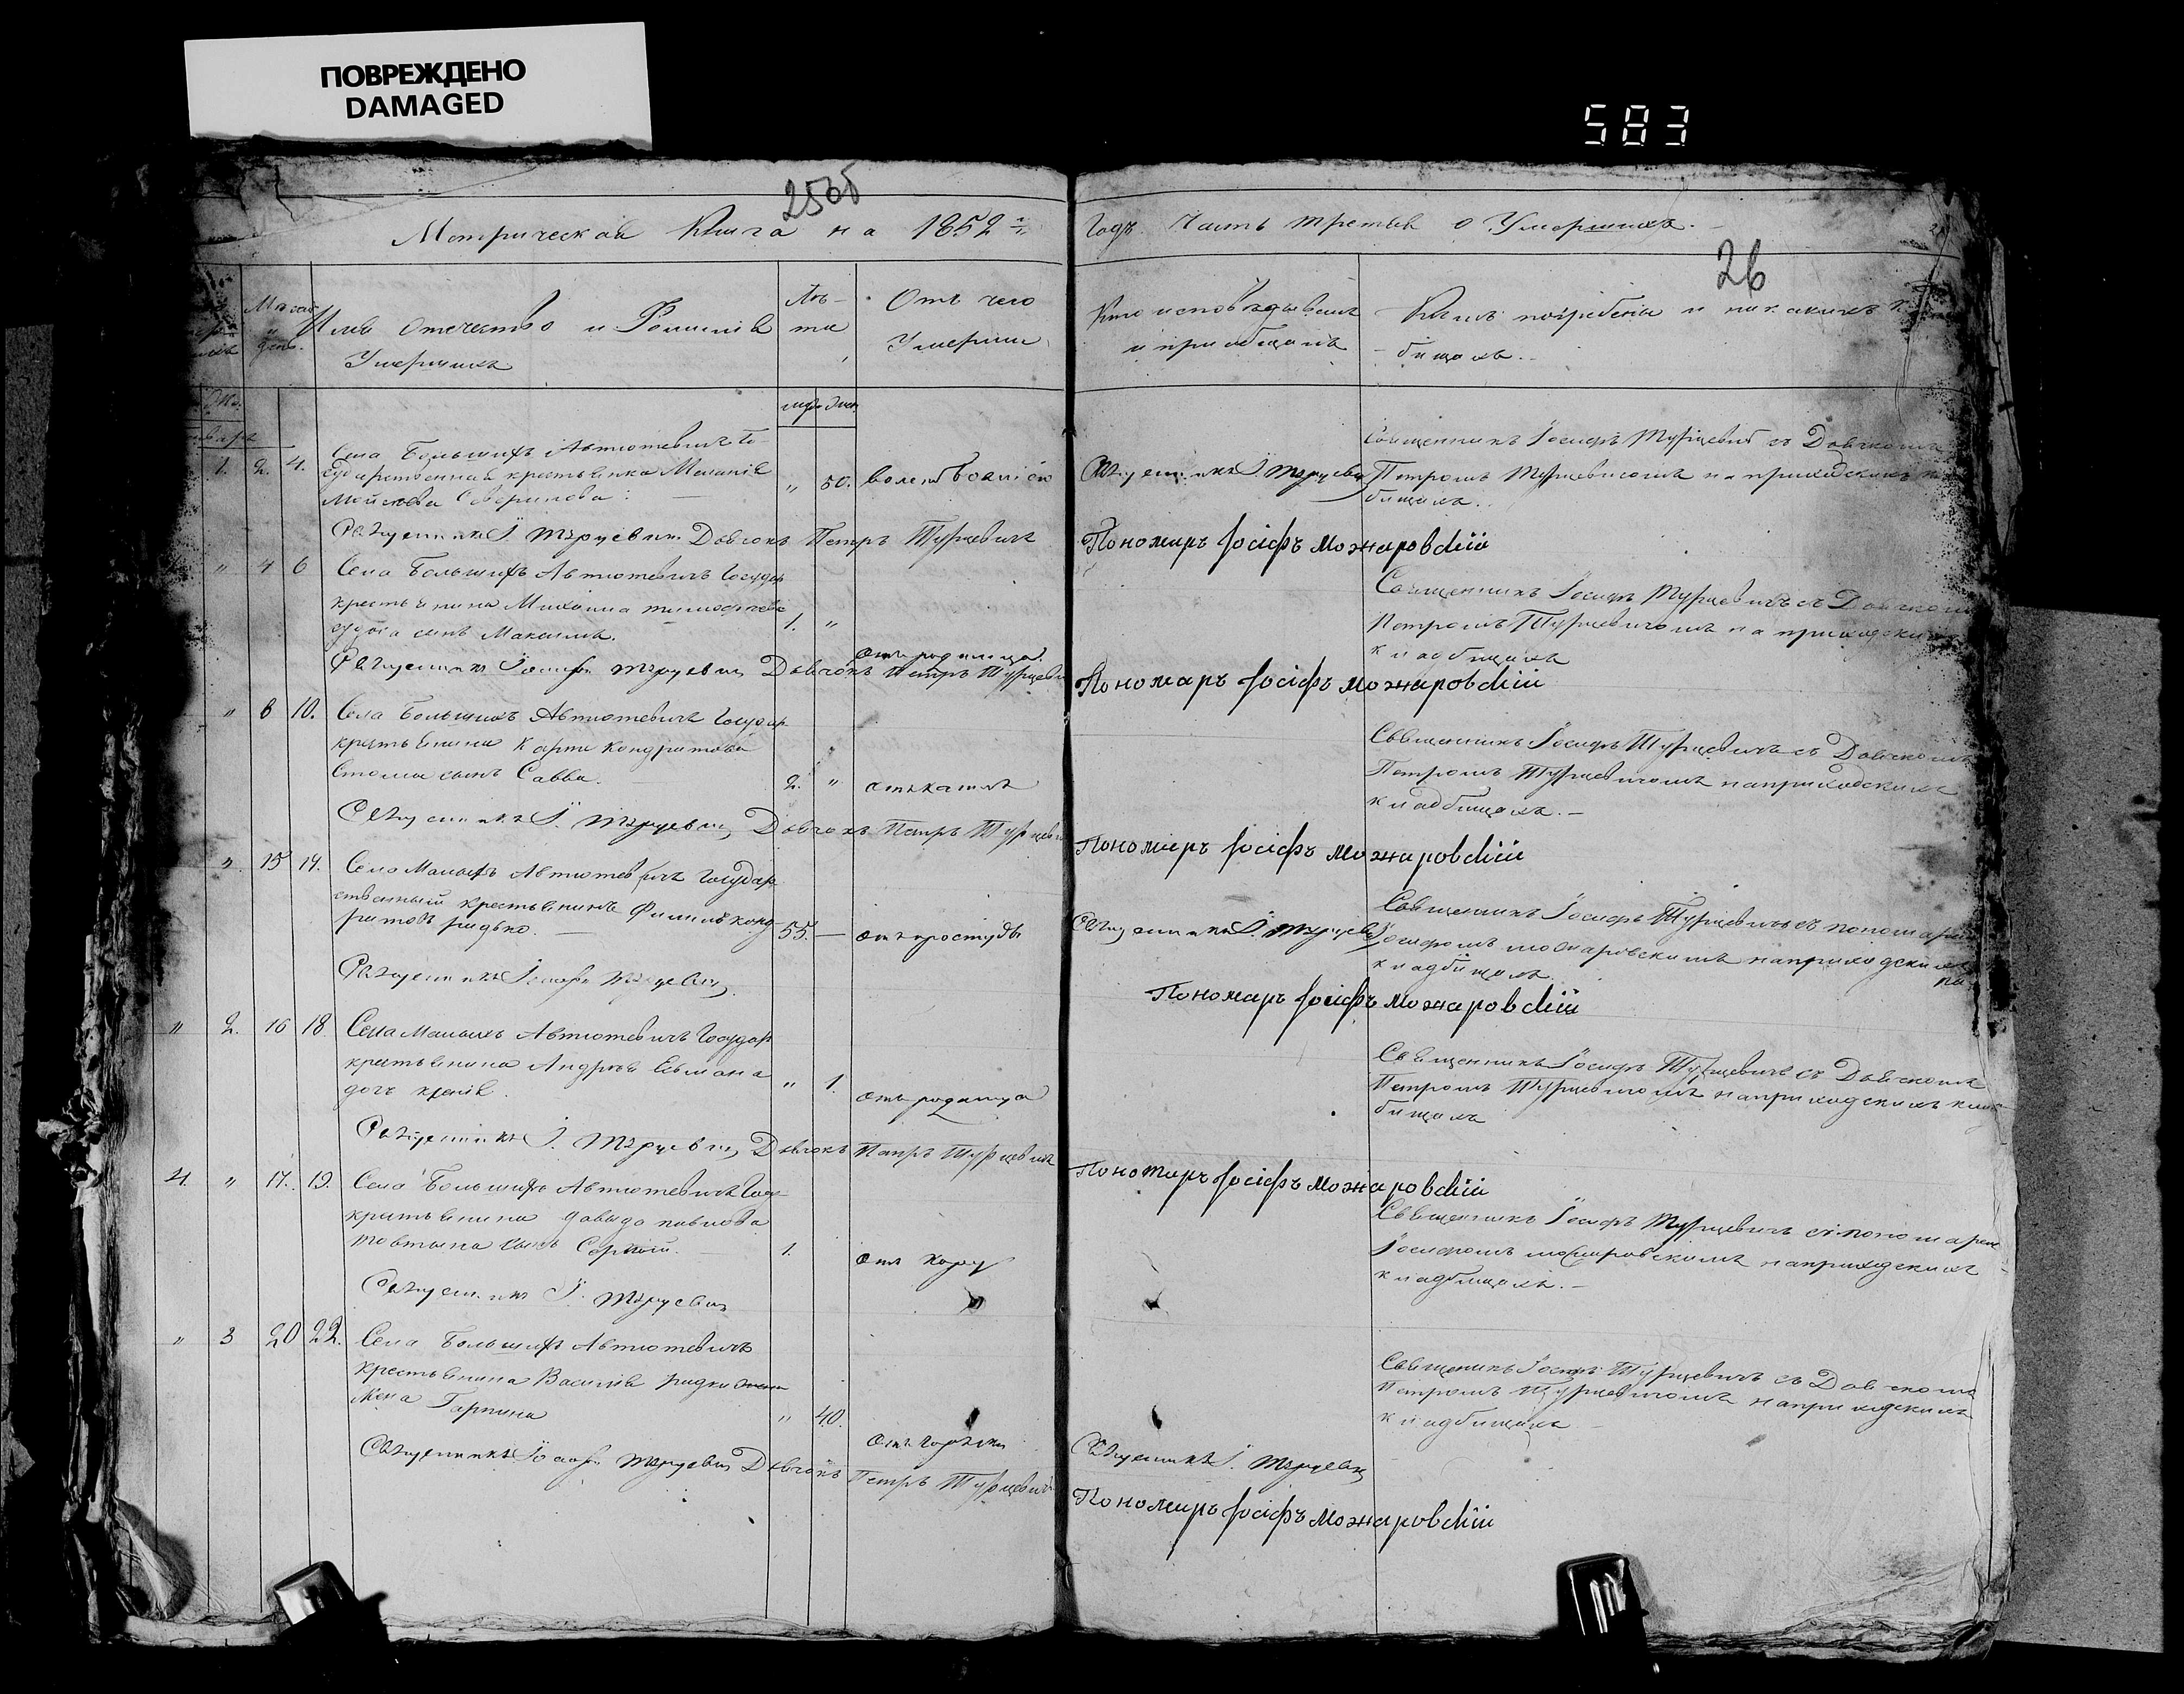 ПОВРЕЖДЕНО
DAMAGED
583
25об
26
Метрическая Книга на 1852 й
Годъ Часть третья о Умершихъ.
Имя Отечество и Фамилія
Умершихъ
Лѣ-
та
Отъ чего
Умерши
Кто исповѣдывалъ
и пріобщалъ
Кѣмъ погребены и на какихъ
бищахъ.
1. 2. 4.
Села Большихъ Автютевичъ Го-
сударственная крестьянка Меланія
Северинова
„ 50.
Священникъ І. Турцевичъ
Священникъ Іосифъ Турцевичъ съ Дьячкомъ
Петромъ Турцевичомъ на приходскихъ
бищахъ.
Священникъ І. Турцевичъ Дьячокъ Петръ Турцевичъ
Пономаръ Іосіфъ Можаровскій
„ 4 6
Села Большихъ Автютевичъ Государ
крестьянина Михаила Тимофеева
сынъ Максимъ.
1. „
отъ родимца.
Священникъ Іосифъ Турцевичъ съ Дьячкомъ
Петромъ Турцевичомъ на приходскихъ
кладбищахъ
Священникъ Іосифъ Турцевичъ Дьячокъ Петръ Турцеви
Пономаръ Іосіфъ Можаровскій
„ 8 10.
Села Большихъ Автютевичъ Государ
крестьянина Карпа Кондратова
сынъ Савва.
2. „
отъ кашля
Священникъ Іосифъ Турцевичъ съ Дьячкомъ
Петромъ Турцевичомъ на приходскихъ
кладбищахъ. –
Священникъ І. Турцевичъ Дьячокъ Петръ Турцеви
Пономаръ Іосіфъ Можаровскій
„ 15 17.
Села Малыхъ Автютевичъ Государ
ственный крестьянинъ Филипъ Конд-
ратовъ Ридько. –
55. –
отъ простуды
Священникъ І. Турцеви
Священникъ Іосифъ Турцевичъ съ пономаремъ
Іосифомъ Можаровскимъ на приходскихъ
кладбищахъ
Священникъ Іосифъ Турцевичъ
Пономаръ Іосіфъ Можаровскій
„ 2. 16 18.
Села Малыхъ Автютевичъ Государ
крестьянина Андрея
дочъ
„ 1.
отъ родимца
Священникъ Іосифъ Турцевичъ съ Дьячкомъ
Петромъ Турцевичомъ на приходскихъ клад
бищахъ
Священникъ І. Турцевичъ Дьячокъ Петръ Турцевичъ
Пономаръ Іосіфъ Можаровскій
4. „ 17. 19.
Села Большихъ Автютевичъ Госу-
крестьянина Давыда Павлова
сынъ Сергій.
1.
отъ кору
Священникъ Іосифъ Турцевичъ съ пономарем
Іосифомъ Можаровскимъ на приходскихъ
кладбищахъ. –
Священникъ І. Турцевичъ
„ 3 20 22.
Села Большихъ Автютевичъ
крестьянина Василія Ридки
жена Гарпина
„ 40.
отъ горячки
Священникъ І. Турцевичъ
Священникъ Іосифъ Турцевичъ съ Дьячкомъ
Петромъ Турцевичомъ на приходскихъ
кладбищахъ –
Священникъ Іосифъ Турцевичъ Дьячокъ Петръ Турцевичъ
Пономаръ Іосіфъ Можаровскій